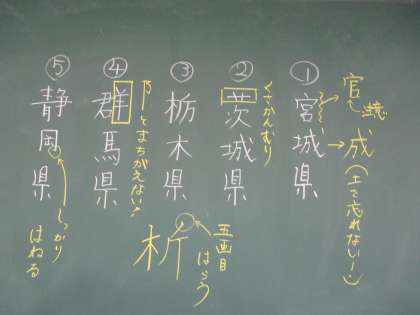 ①宮城県
官と
成(土を忘れない!)
②茨城県
くさかんむり
③栃木県
④群馬県
とまちがえない!
⑤静岡県
しっかり
はねる
五画目
はらう